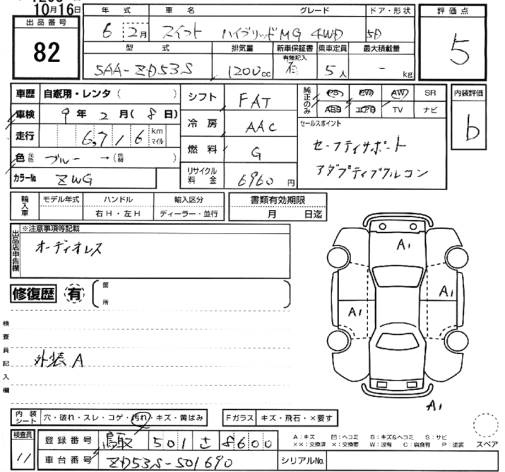 10月16日
出品番号
82
年式 車名 グレード ドア・形状
6 2月 スイフト ハイブリッドMG 4WD 5D
型式 排気量 新車保証書 乗車定員 最大積載量
有無記入
5AA-ZD53S 1200cc 有 5人 - kg
評価点
5
車歴 自家用・レンタ( )
車検 9年2月(8日)
走行 6,716 km マイル
色 元色 ブルー →(色替 )
カラーNo ZWG
シフト FAT
冷房 AAC
燃料 G
リサイクル料金 6960円
純正のみ PS PW AW SR
ABS エアB TV ナビ
セールスポイント
セーフティサポート
アダプティブクルコン
内装評価
b
輸入車 モデル年式 ハンドル 輸入区分
右H・左H ディーラー・並行
書類有効期限
月 日迄
出品店申告欄
※注意事項等記載
オーディオレス
修復歴 有 箇所
検査員記入欄
外装A
A1
A1
A1
A1
内装シート 穴・破れ・スレ・コゲ・汚れ・キズ・黄ばみ
Fガラス キズ・飛石・×要す
検査員
11
登録番号 鳥取 501 さ 8600
車台番号 ZD53S-501690
シリアルNo
A:キズ U:ヘコミ B:キズ&ヘコミ S:サビ
××:交換済 ×:交換要 W:波有 C:腐食有 P:塗装
スペア